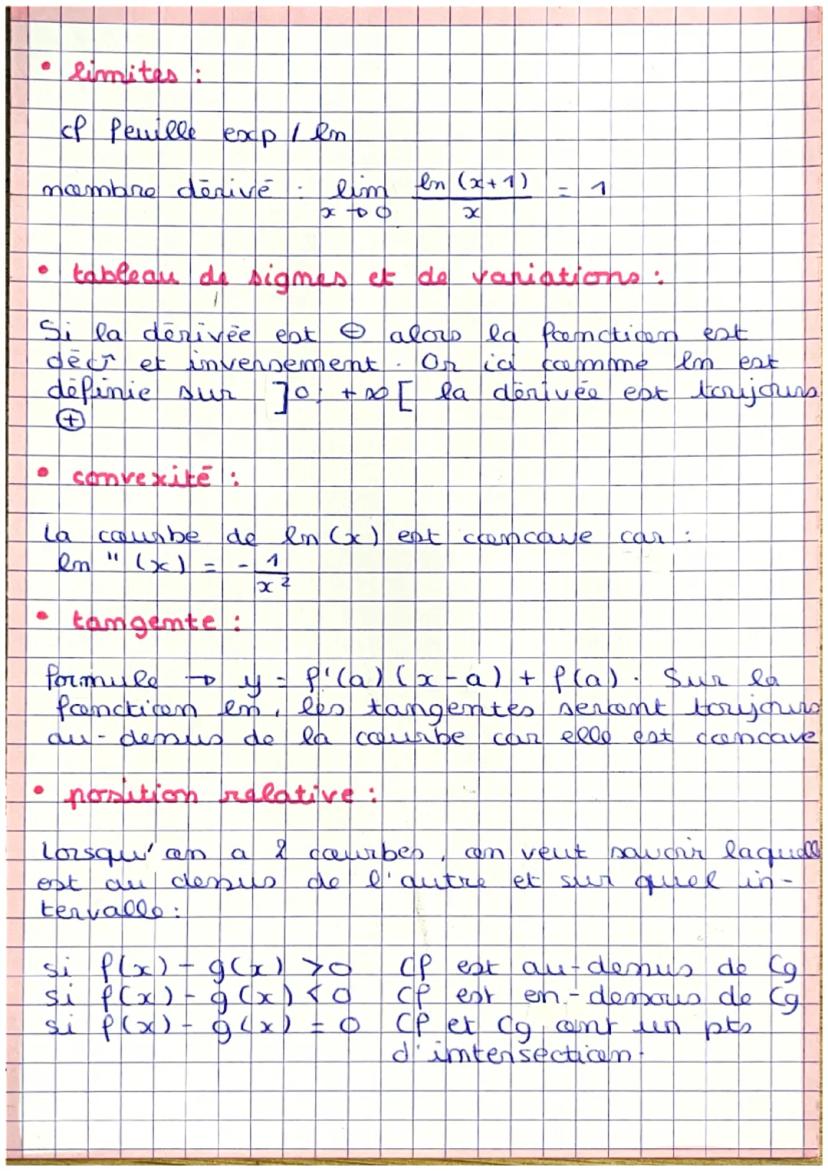 • limites :
cf feuille exp / ln
nombre dérivé : lim ln (x+1) / x = 1
x → 0
• tableau de signes et de variations :
Si la dérivée est ⊖ alors la fonction est
décr et inversement. Or ici comme ln est
définie sur ]0; +∞[ la dérivée est toujours
⊕
• convexité :
La courbe de ln(x) est concave car :
ln''(x) = - 1/x²
• tangente :
formule → y = f'(a)(x-a) + f(a). Sur la
fonction ln, les tangentes seront toujours
au-dessus de la courbe car elle est concave
• position relative :
Lorsqu'on a 2 courbes, on veut savoir laquelle
est au dessus de l'autre et sur quel in-
tervalle :
si f(x) - g(x) > 0 Cf est au-dessus de Cg
si f(x) - g(x) < 0 Cf est en-dessous de Cg
si f(x) - g(x) = 0 Cf et Cg ont un pts
d'intersection.